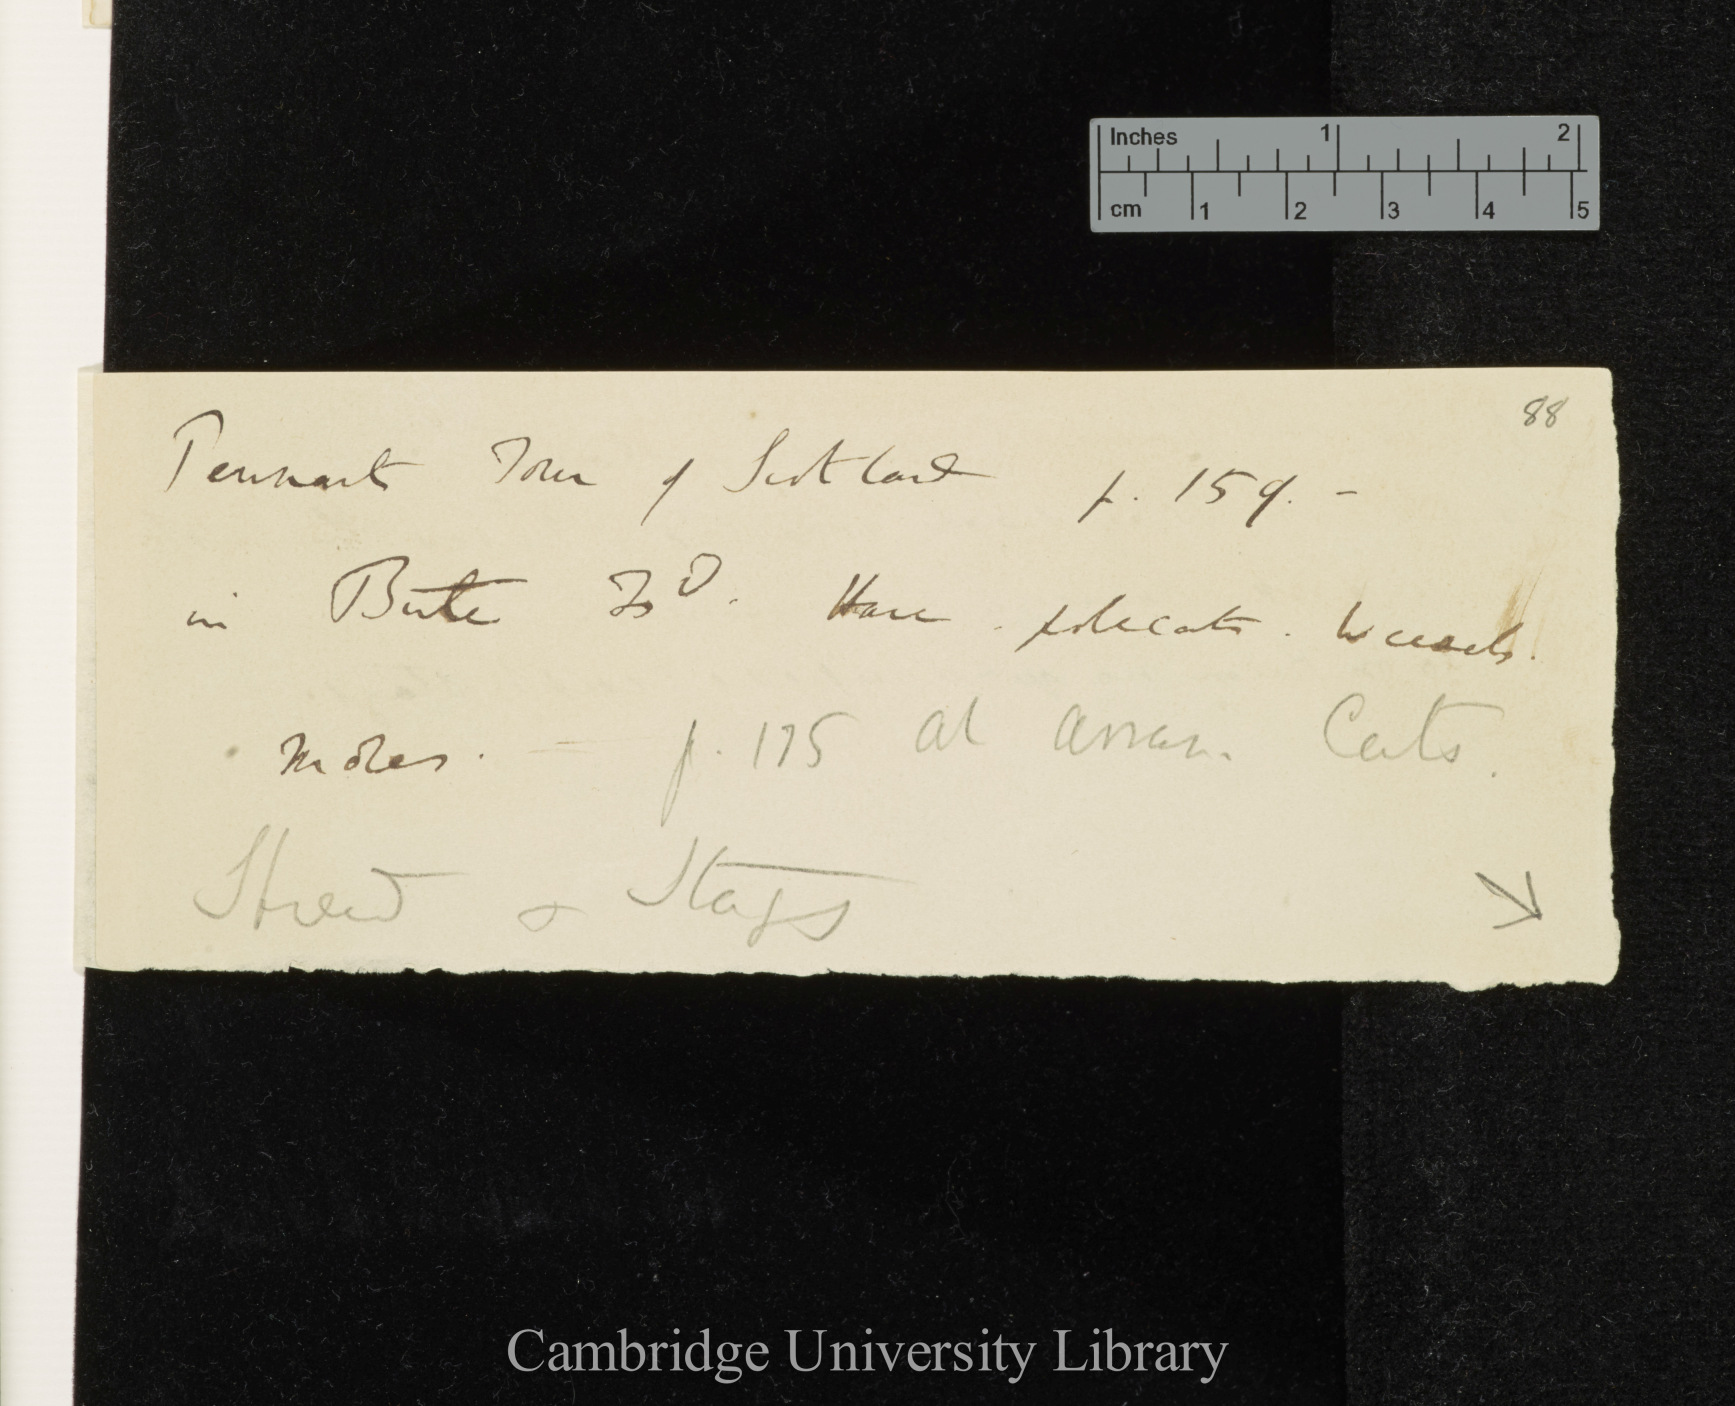 Inches 1 2
cm 1 2 3 4 5
88
Pennant Tour of Scotland p. 159. –
in Bute Isd. Hare. polecats. Weasels.
moles. – p. 175 at Arran. Cats.
Shrew & Stags
Cambridge University Library